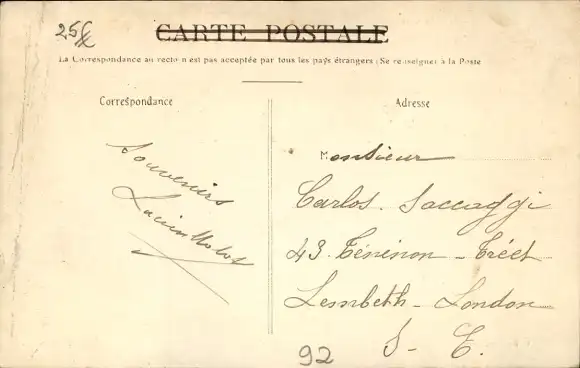 25
CARTE POSTALE
La Correspondance au recto n'est pas acceptée par tous les pays étrangers (Se renseigner à la Poste
Correspondance
Adresse
Souvenirs
Monsieur
Carlos. Saccaggi
43. Téninon - Tréet
Lembeth - London
S - E.
92